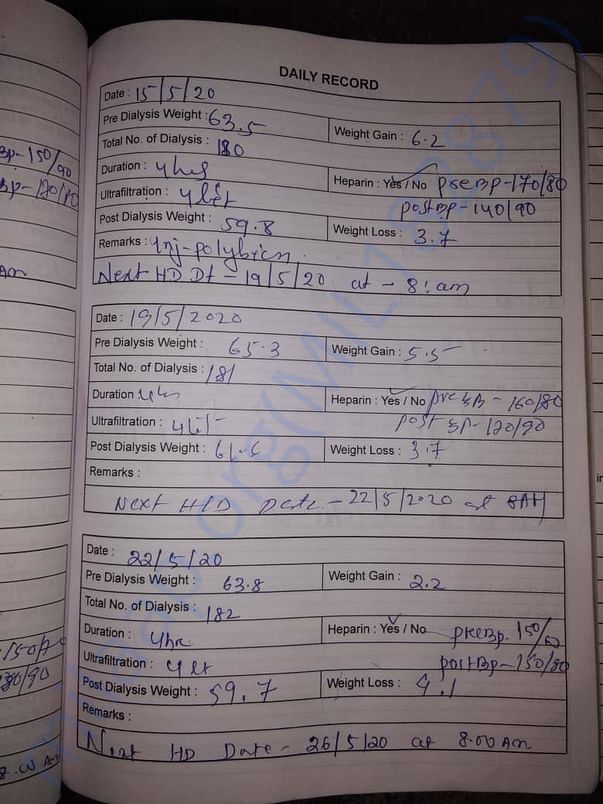 Bp- 150/90
DAILY RECORD
Date : 15/5/20
Pre Dialysis Weight : 63.5 Weight Gain : 6.2
Total No. of Dialysis : 180
Duration : 4hrs Heparin : Yes / No preBp-170/80
Ultrafiltration : 4 lit postBp- 140/90
Post Dialysis Weight : 59.8 Weight Loss : 3.7
Remarks : Inj-
Next HD Dt - 19/5/20 at - 8:am
Date : 19/5/2020
Pre Dialysis Weight : 65.3 Weight Gain : 5.5
Total No. of Dialysis : 181
Duration 4hr Heparin : Yes / No preBp - 160/80
Ultrafiltration : 4lit post Bp-
Post Dialysis Weight : 61.6 Weight Loss : 3.7
Remarks :
Next HD Date - 22/5/2020 at 8AM
Date : 22/5/20
Pre Dialysis Weight : 63.8 Weight Gain : 2.2
Total No. of Dialysis : 182
Duration : 4hr Heparin : Yes / No preBp- 150/
Ultrafiltration : 4 lt postBp- 150/80
Post Dialysis Weight : 59.7 Weight Loss : 4.1
Remarks :
Next HD Date - 26/5/20 at 8.00 Am